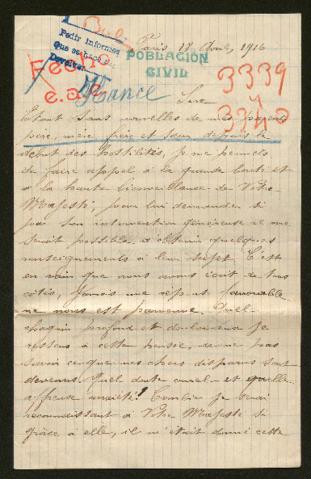 Pedir informes
Que se haga
Devolver
Fecho
e.a.
POBLACIÓN
CIVIL
3339
y
3340
Paris 18 Août, 1916
France
Sire
Etant sans nouvelles de mes parents
père, mère, frère et sœur depuis le
début des hostilités, je me permets
de faire appel à la grande bonté et
à la haute bienveillance de Votre
Majesté, pour lui demander si
par son intervention généreuse il me
serait possible d'obtenir quelques
renseignements à leur sujet. C'est
en vain que nous avons écrit de tous
côtés, jamais une réponse favorable
ne nous est parvenue. Quel
chagrin profond et douloureux je
ressens à cette pensée, de ne pas
savoir ce que mes chers disparus sont
devenus. Quel doute cruel et quelle
affreuse anxiété! Combien je serai
reconnaissant à Votre Majesté si
grâce à elle, il m'était donné cette